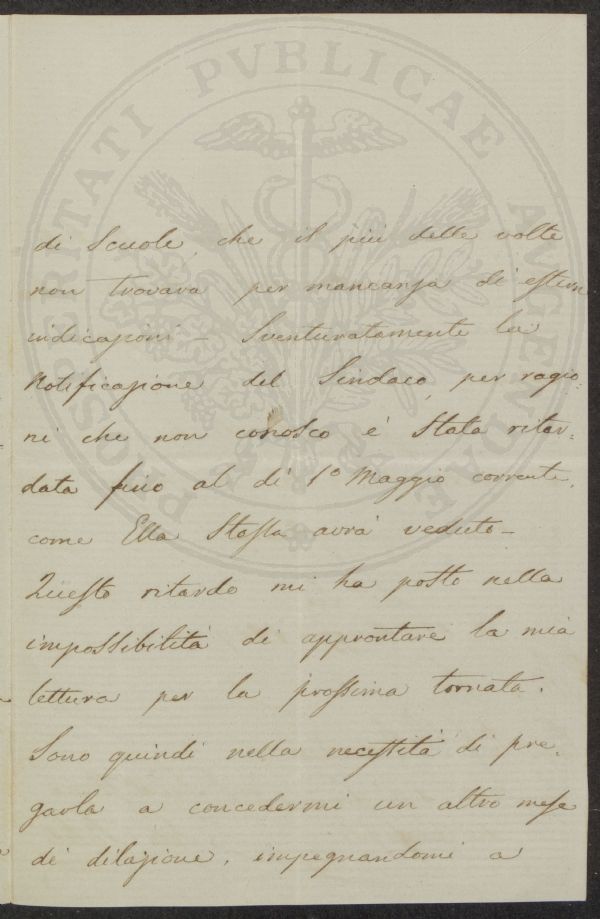 PROSPERITATI PVBLICAE AVGENDAE
di Scuole, che il più delle volte
non trovava per mancanza di esterne
indicazioni – Sventuratamente la
Notificazione del Sindaco, per ragio:
ni che non conosco è stata ritar:
data fino al dì 1º Maggio corrente,
come Ella Stessa avrà veduto –
Questo ritardo mi ha posto nella
impossibilità di approntare la mia
lettura per la prossima tornata.
Sono quindi nella necessità di pre:
garla a concedermi un altro mese
di dilazione, impegnandomi a